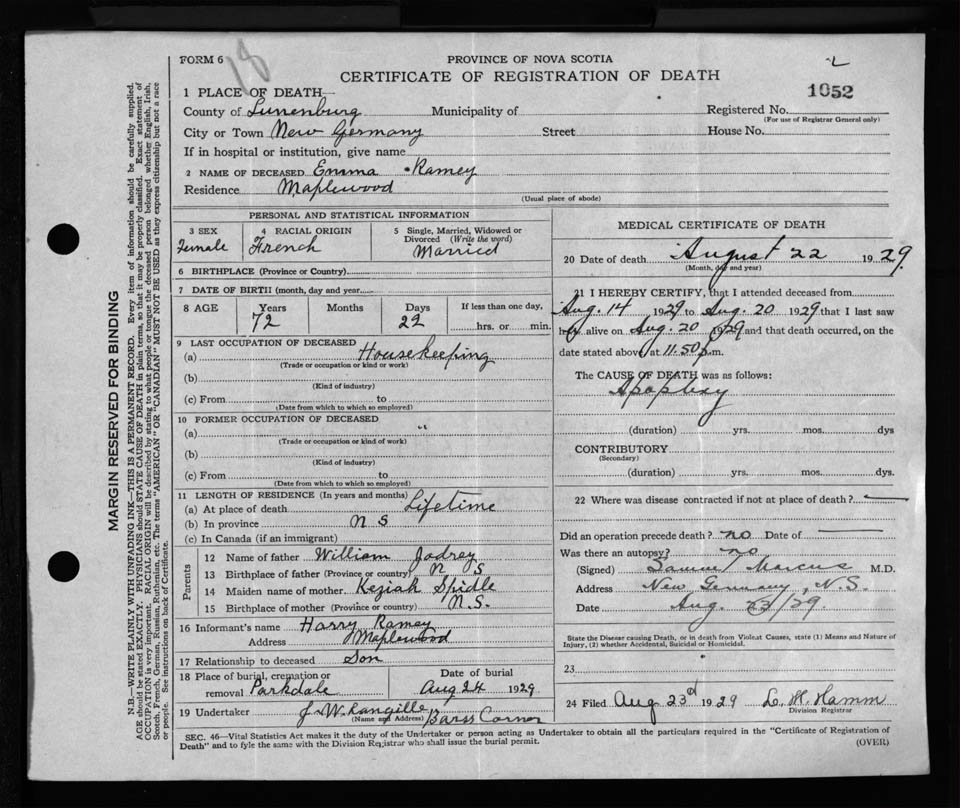 FORM 6
18
PROVINCE OF NOVA SCOTIA
CERTIFICATE OF REGISTRATION OF DEATH
1052
1 PLACE OF DEATH—
County of Lunenburg Municipality of Registered No.
(For use of Registrar General only)
City or Town New Germany Street House No.
If in hospital or institution, give name
2 NAME OF DECEASED Emma Ramey
Residence Maplewood
(Usual place of abode)
PERSONAL AND STATISTICAL INFORMATION
3 SEX
Female
4 RACIAL ORIGIN
French
5 Single, Married, Widowed or
Divorced (Write the word)
Married
6 BIRTHPLACE (Province or Country)
7 DATE OF BIRTH (month, day and year)
8 AGE Years Months Days If less than one day,
72 22 hrs. or min.
9 LAST OCCUPATION OF DECEASED
(a) Housekeeping
(Trade or occupation or kind or work)
(b)
(Kind of industry)
(c) From to
(Date from which to which so employed)
10 FORMER OCCUPATION OF DECEASED
(a) "
(Trade or occupation or kind of work)
(b)
(Kind of industry)
(c) From to
(Date from which to which so employed)
11 LENGTH OF RESIDENCE (In years and months)
(a) At place of death Lifetime
(b) In province N S
(c) In Canada (if an immigrant)
Parents
12 Name of father William Jodrey
13 Birthplace of father (Province or country) N S
14 Maiden name of mother Keziah Spidle
15 Birthplace of mother (Province or country) N.S.
16 Informant's name Harry Ramey
Address Maplewood
17 Relationship to deceased Son
18 Place of burial, cremation or removal Parkdale
Date of burial
Aug 24 1929
19 Undertaker J. W. Rangille
(Name and Address) Barss Corner
MEDICAL CERTIFICATE OF DEATH
20 Date of death August 22 1929
(Month, day and year)
21 I HEREBY CERTIFY, that I attended deceased from
Aug. 14 1929 to Aug. 20 1929 that I last saw
her alive on Aug. 20 1929 and that death occurred, on the
date stated above at 11.50 p.m.
The CAUSE OF DEATH was as follows:
Apoplexy
(duration) yrs. mos. dys
CONTRIBUTORY
(Secondary)
(duration) yrs. mos. dys.
22 Where was disease contracted if not at place of death?
Did an operation precede death? no Date of
Was there an autopsy? no
(Signed) Marcus M.D.
Address New Germany, N.S.
Date Aug. 23/29.
State the Disease causing Death, or in death from Violent Causes, state (1) Means and Nature of
Injury, (2) whether Accidental, Suicidal or Homicidal.
23
24 Filed Aug 23rd 1929 L. M. Hamm
Division Registrar
SEC. 46—Vital Statistics Act makes it the duty of the Undertaker or person acting as Undertaker to obtain all the particulars required in the "Certificate of Registration of
Death" and to fyle the same with the Division Registrar who shall issue the burial permit.
(OVER)
MARGIN RESERVED FOR BINDING
N.B.—WRITE PLAINLY WITH UNFADING INK—THIS IS A PERMANENT RECORD. Every item of information should be carefully supplied.
AGE should be stated EXACTLY. PHYSICIANS should STATE CAUSE OF DEATH in plain terms, so that it may be properly classified. Exact statement of
OCCUPATION is very important. RACIAL ORIGIN will be described by stating to what people or tongue the deceased person belonged whether English, Irish,
Scotch, French, German, Russian, Ruthenian, etc. The terms "AMERICAN" OR "CANADIAN" MUST NOT BE USED as they express citizenship but not a race
or people. See instructions on back of Certificate.